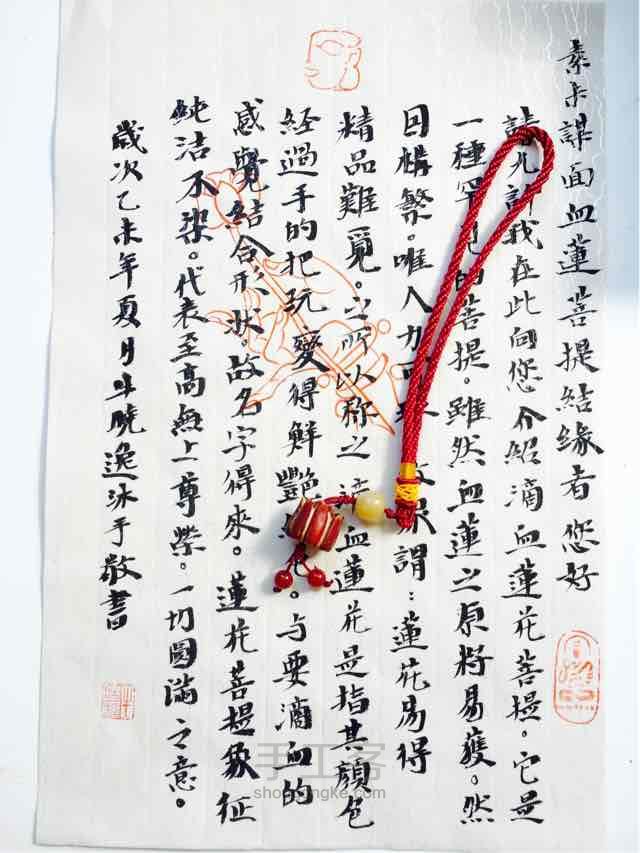 素未謀面血蓮菩提結緣者您好
請允許我在此向您介紹滴血蓮花菩提。它是
一種罕見的菩提。雖然血蓮之原籽易獲。然
構繁。唯人力可 謂：蓮花易得
精品難覓。之所以称之 血蓮花是指其顏色
经過手的把玩，變得鮮艷 。与要滴血的
感覺結合形状。故名字得來。蓮花菩提象征
純洁不染。代表至高無上尊榮。一切圓滿之意。
歲次乙未年夏月 曉逸 手敬書
手工客
shougongke.com